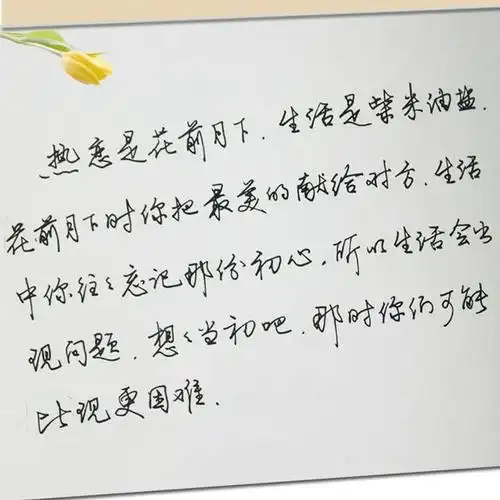 热恋是花前月下.生活是柴米油盐.
花前月下时你把最美的献给对方.生活
中你往往忘记那份初心.所以生活会出
现问题.想想当初吧.那时你们可能
比现更困难.